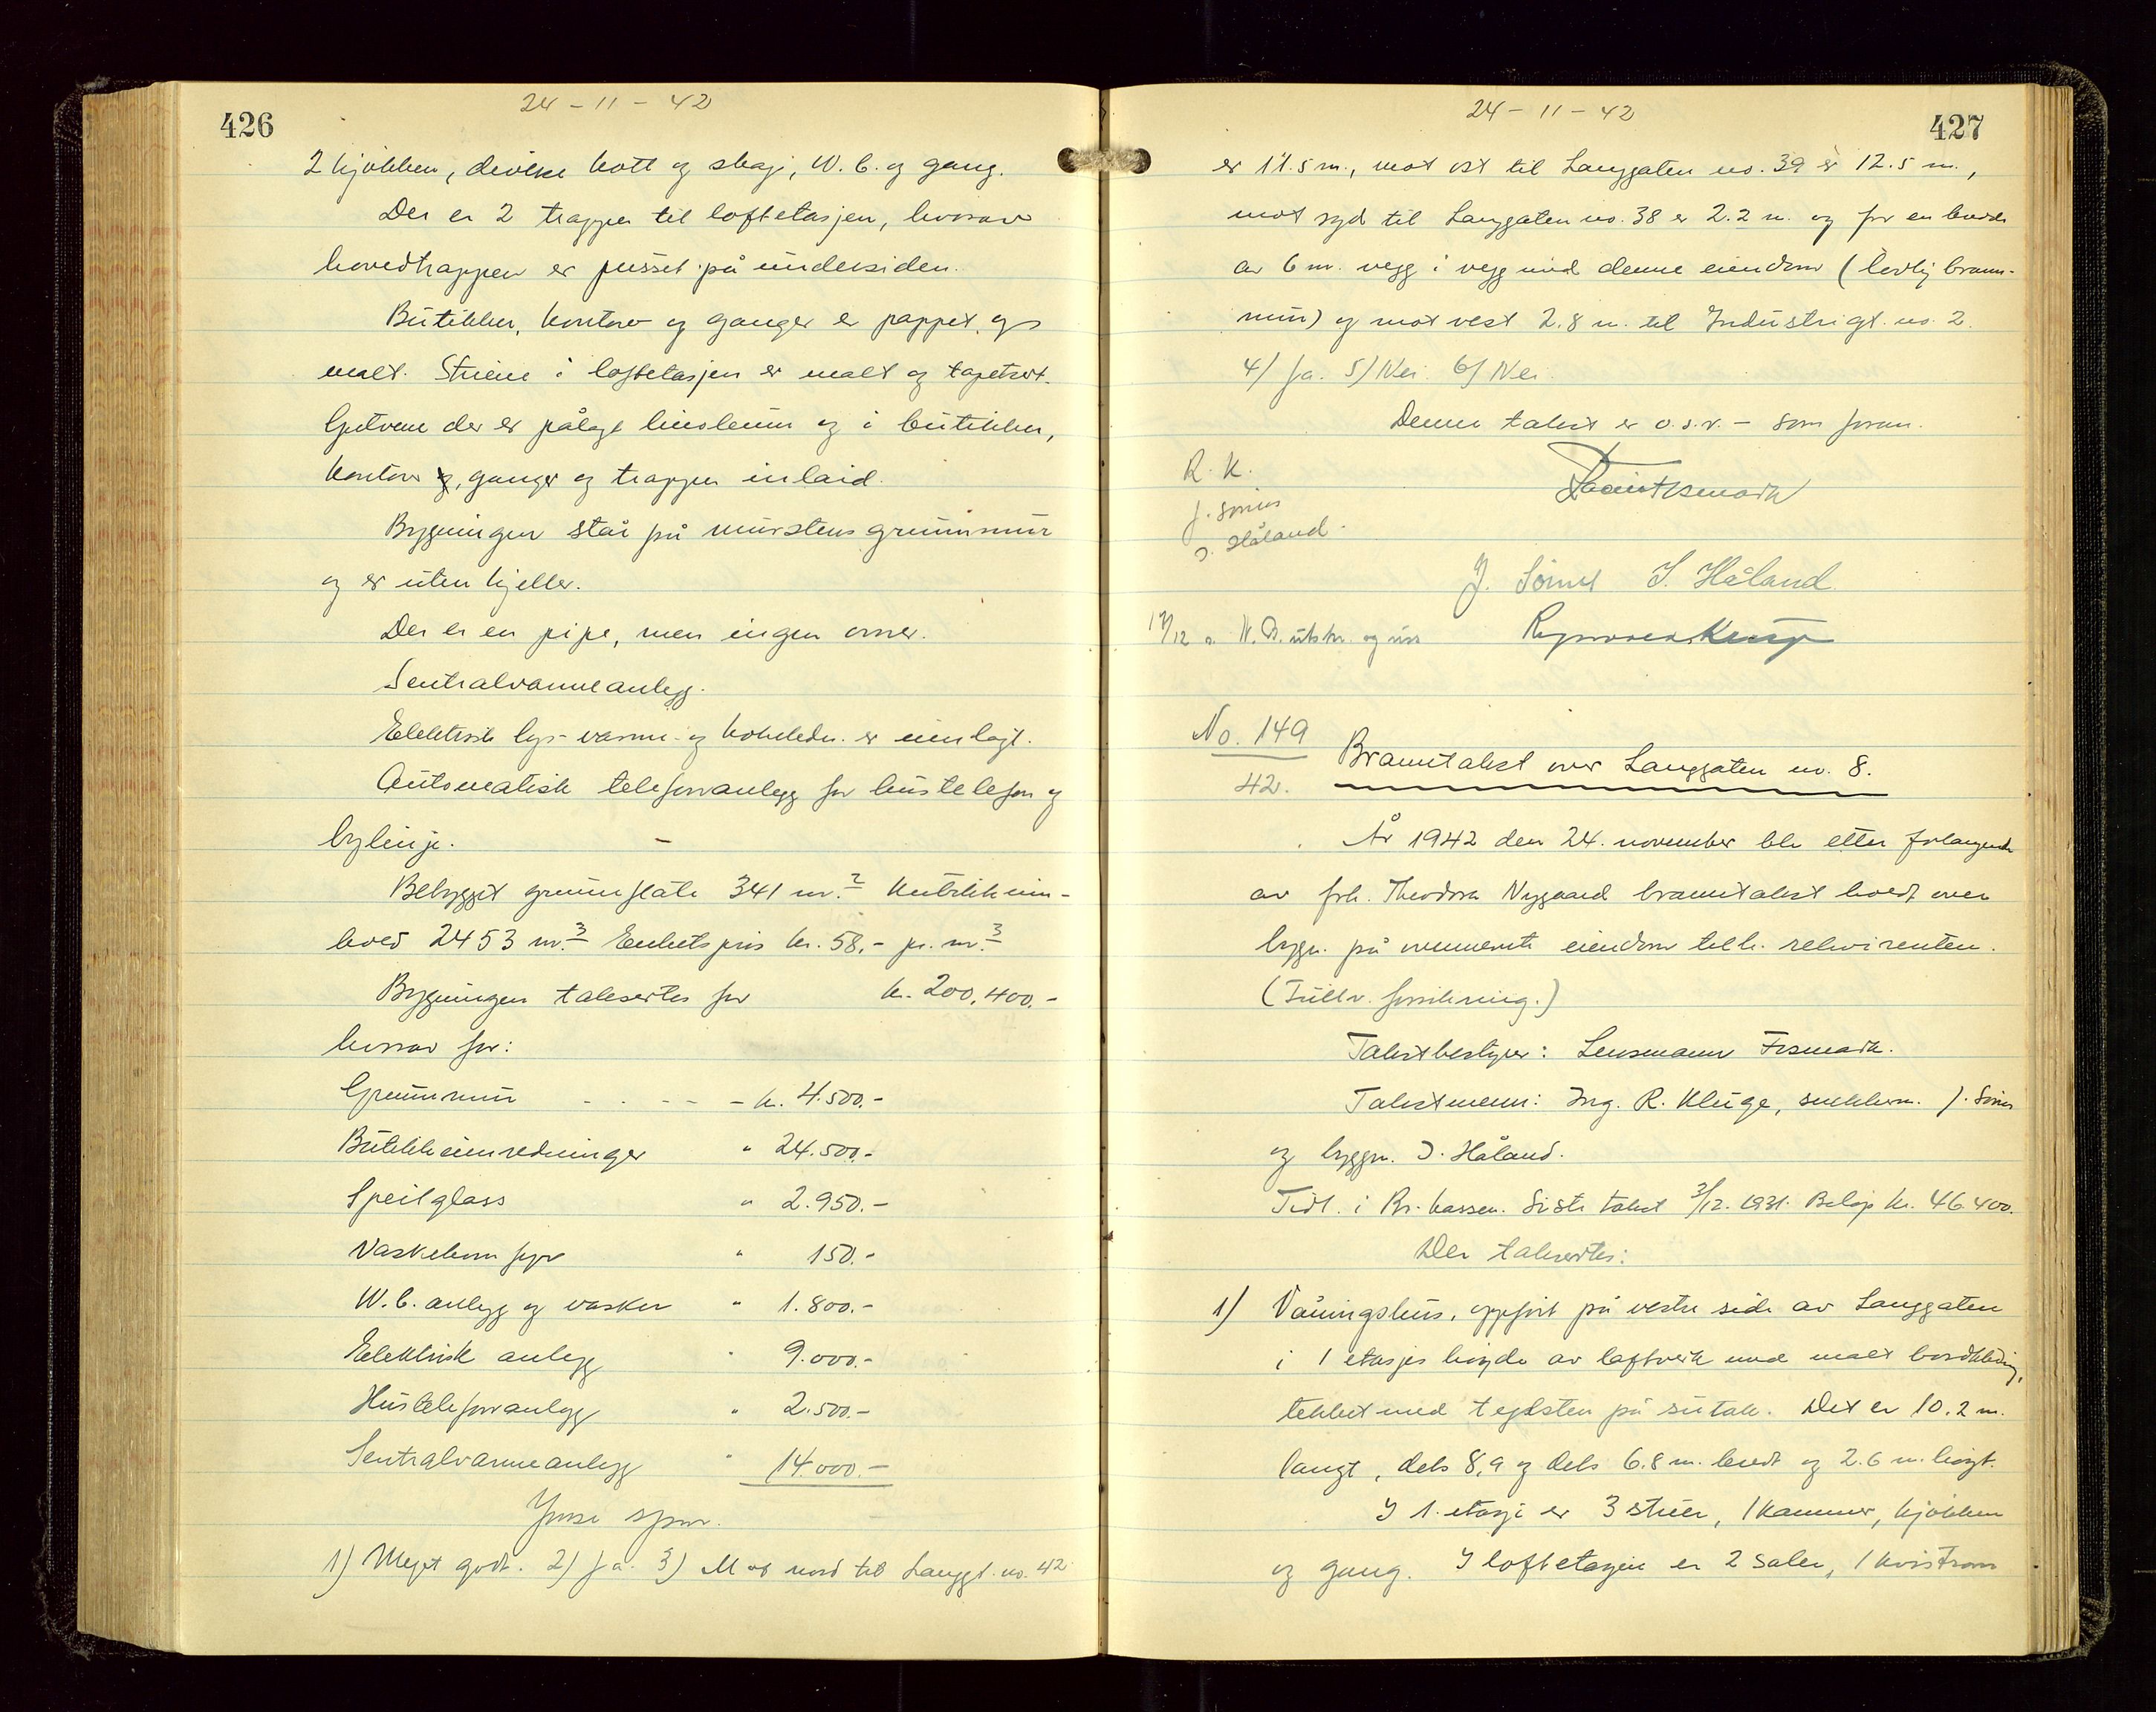 426
24 - 11 - 42
2 kjökken, diverse kott og skap, W.C. og gang.
Der er 2 trapper til loftetasjen, hvorav
hovedtrappen er pusset på undersiden.
Butikker, kontor og ganger er pappet og
malt. Stuene i loftetasjen er malt og tapetsert.
Gulvene der er pålagt linoleum og i butikker,
kontor, ganger og trapper inlaid.
Bygningen står på murstens grunnmur
og er uten kjeller.
Der er en pipe, men ingen ovner.
Sentralvarmeanlegg.
Elektrisk lys- varme- og kokeledn. er innlagt.
Automatisk telefonanlegg for hustelefon og
bylinje.
Bebygget grunnflate 341 m.2 Kubikkinn-
hold 2453 m.3 Enhetspris kr. 58.- pr. m.3
Bygningen takseertes for kr. 200,400.-
hvorav for:
Grunnmur - - - - - kr. 4.500.-
Butikkinnredninger " 24.500.-
Speilglass " 2.950.-
Vaskekom fyr " 150.-
W.C. anlegg og vasker " 1.800.-
Elektrisk anlegg " 9.000.-
Hustelefonanlegg " 2.500.-
Sentralvarmeanlegg " 14.000.-
Jmse spm.
1) Meget godt. 2) Ja. 3) Mot nord til Langgt. no. 42
427
24 - 11 - 42
er 11.5 m., mot öst til Langgaten no. 39 er 12.5 m.,
mot syd til Langgaten no. 38 er 2.2 m. og for en bredde
av 6 m. vegg i vegg med denne eiendom (lovlig brann-
mur) og mot vest 2.8 m. til Industrigt. no. 2.
4) Ja. 5) Nei. 6) Nei.
Denne takst er o.s.v. - som foran.
R. K.
J. Sörnes
I. Håland.
J. Sörnes I. Håland
17/12 utskr. og
No. 149
42.
Branntakst over Langgaten no. 8.
År 1942 den 24. november ble etter forlangende
av frk. Theodora Nygaard branntakst holdt over
bygn. på ovennevnte eiendom tilh. rekvirenten.
(Fullv. forsikring.)
Takstbestyrer: Lensmann Tismark.
Takstmenn: Ing. R. Kluge, snekkerm. J. Sörnes
og byggm. I. Håland.
Tidl. i Br. kassen. Siste takst 3/12. 1931. Belöp kr. 46.400.
Der takseertes:
1) Våningshus, oppfört på vestre side av Langgaten
i 1 etasjes höyde av laftverk med malt bordkledning,
tekket med teglsten på sutak. Det er 10.2 m.
langt, dels 8,9 og dels 6.8 m. bredt og 2.6 m. höyt.
I 1. etasje er 3 stuer, 1 kammer, kjökken
og gang. I loftetasjen er 2 saler, 1 kvistrom